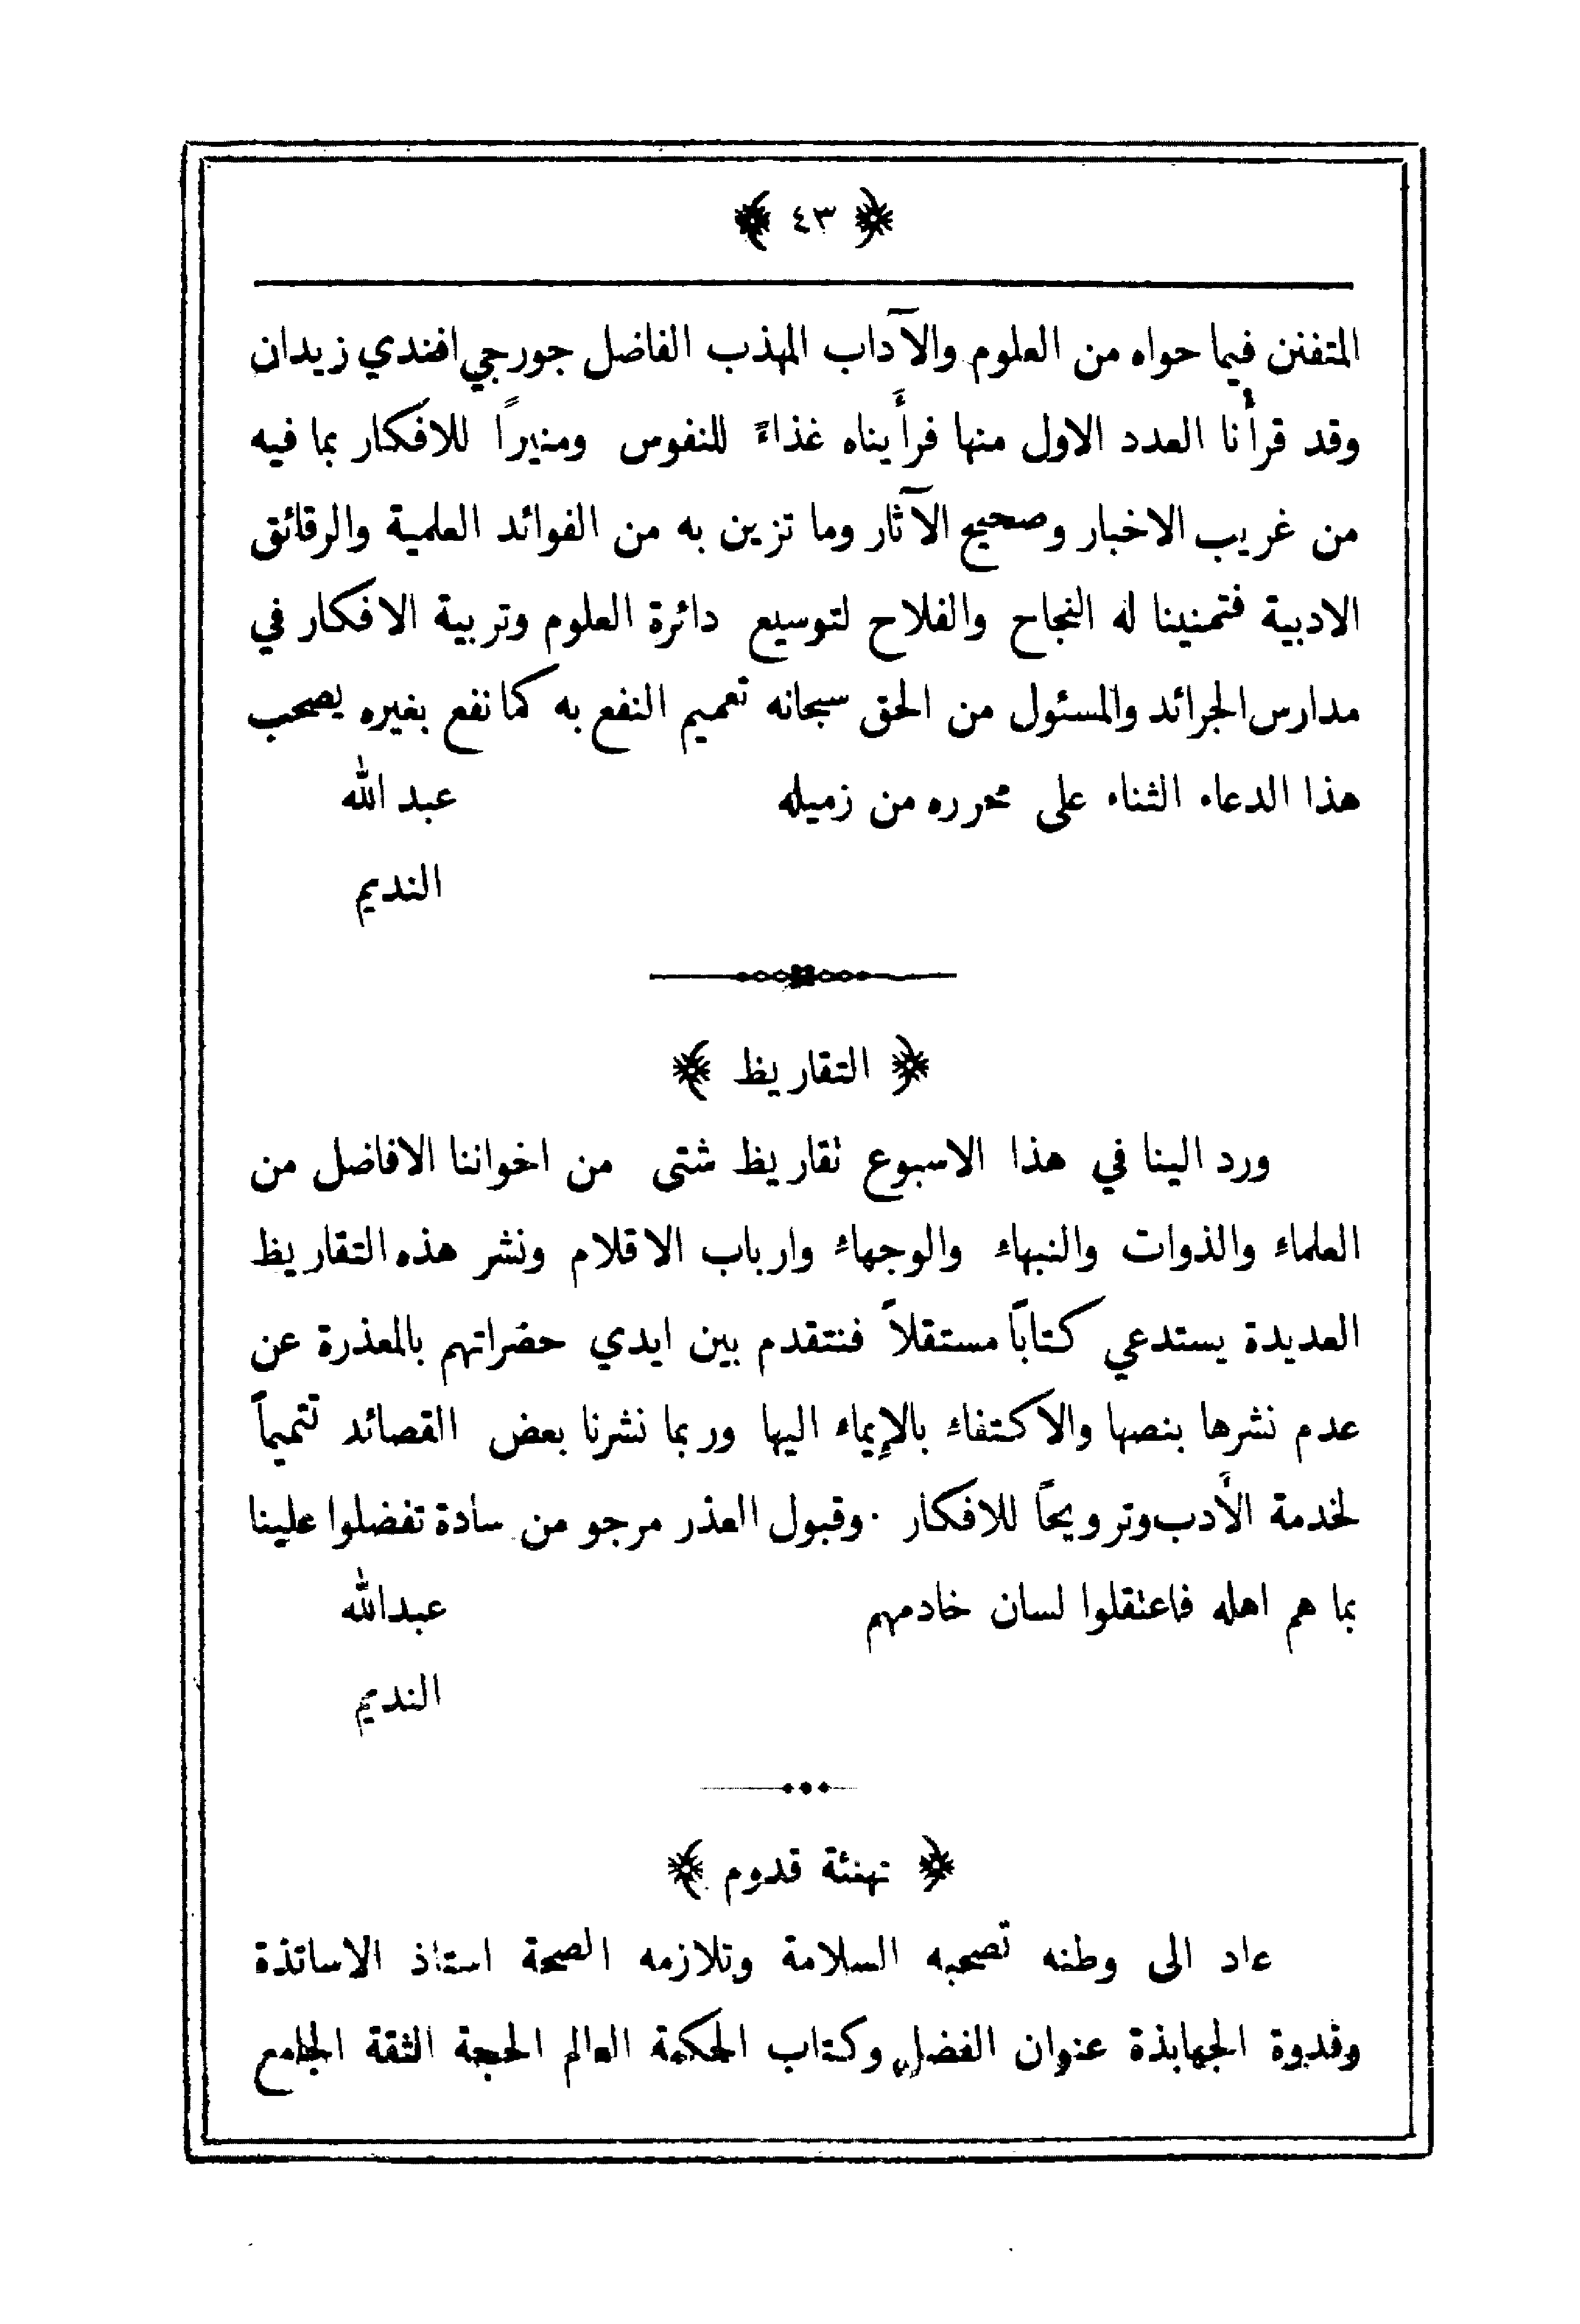 ﴿ ٤٣ ﴾
المتفنن فيما حواه من العلوم والآداب المهذب الفاضل جورجي افندي زيدان
وقد قرأنا العدد الاول منها فرأيناه غذاءً للنفوس ومنيرًا للافكار بما فيه
من غريب الاخبار وصحيح الآثار وما تزين به من الفوائد العلمية والرقائق
الادبية فتمنينا له النجاح والفلاح لتوسيع دائرة العلوم وتربية الافكار في
مدارس الجرائد والمسئول من الحق سبحانه تعميم النفع به كما نفع بغيره يصحب
هذا الدعاء الثناء على محرره من زميله عبد الله
النديم
﴿ التقاريظ ﴾
ورد الينا في هذا الاسبوع تقاريظ شتى من اخواننا الافاضل من
العلماء والذوات والنبهاء والوجهاء وارباب الاقلام ونشر هذه التقاريظ
العديدة يستدعي كتابًا مستقلاً فنتقدم بين ايدي حضراتهم بالمعذرة عن
عدم نشرها بنصها والاكتفاء بالإيماء اليها وربما نشرنا بعض القصائد تتميماً
لخدمة الأدب وترويحًا للافكار ٠ وقبول العذر مرجو من سادة تفضلوا علينا
بما هم اهله فاعتقلوا لسان خادمهم عبدالله
النديم
﴿ تهنئة قدوم ﴾
عاد الى وطنه تصحبه السلامة وتلازمه الصحة استاذ الاساتذة
وقدوة الجهابذة عنوان الفضل وكتاب الحكمة العالم الحجة الثقة الجامع